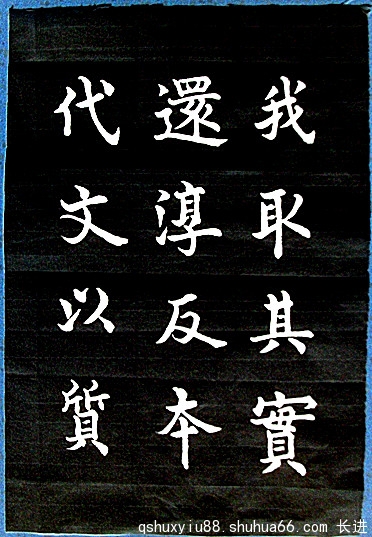 我取其實
還淳反本
代文以質
qshuxyiu88.shuhua66.com 长进